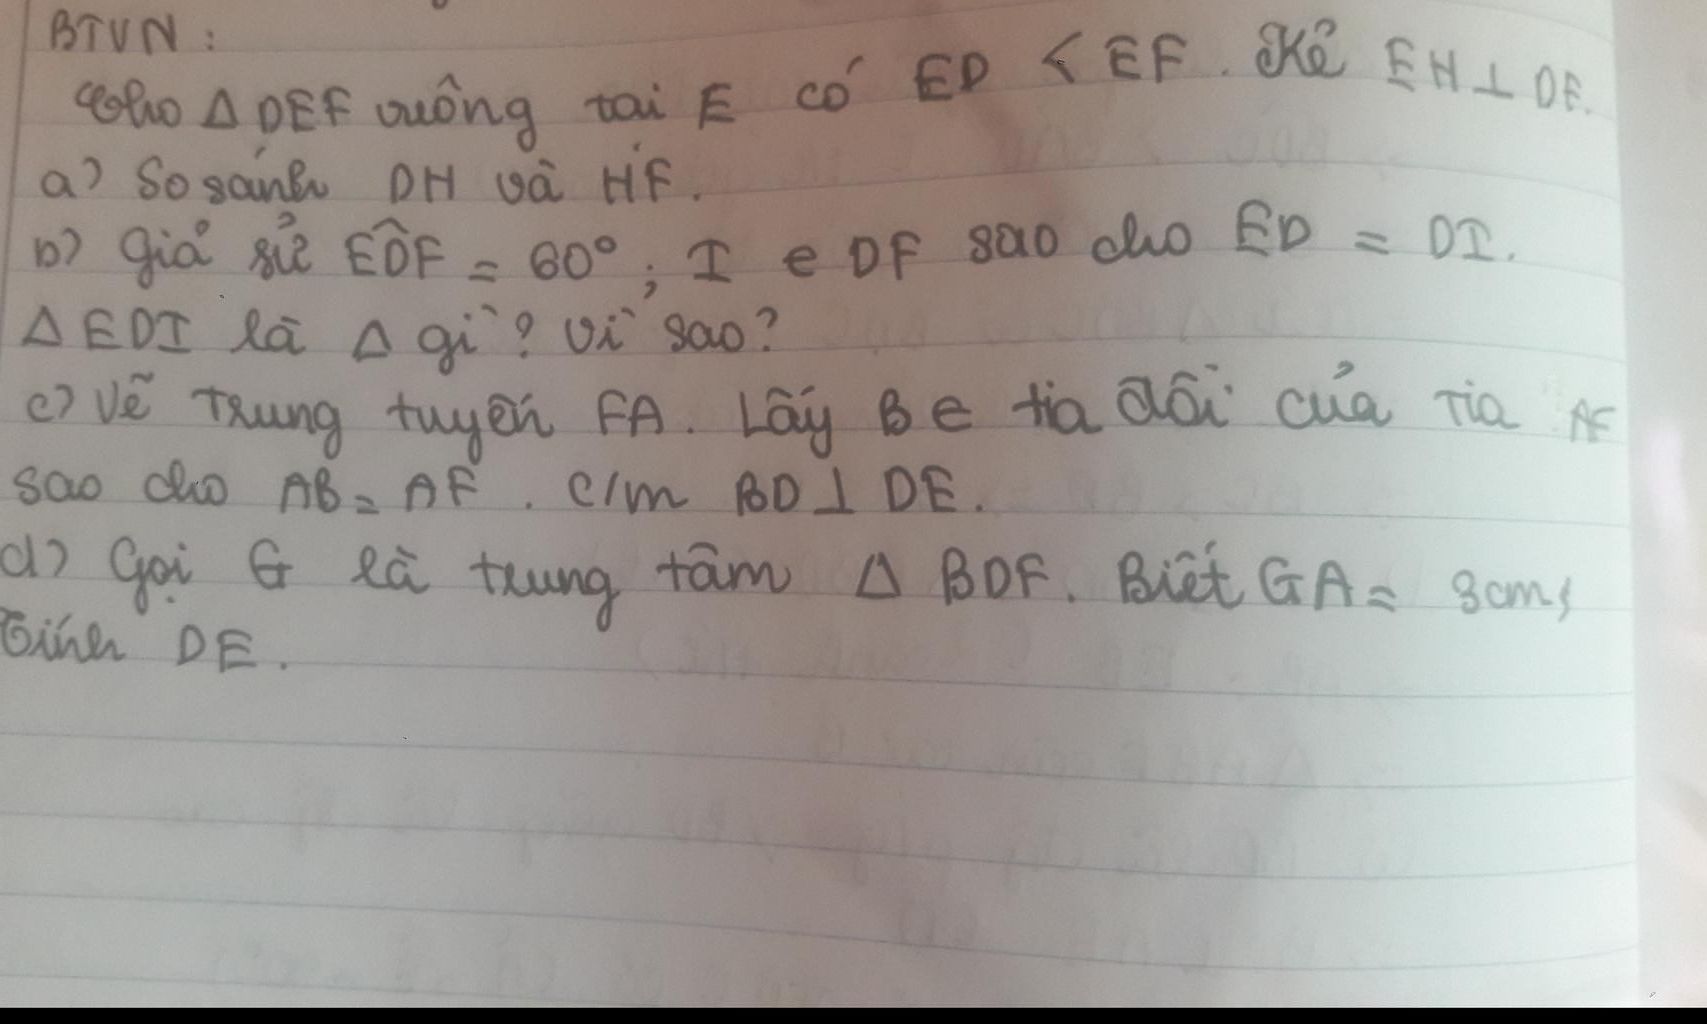 BTVN:
Cho Δ DEF vuông tai E có ED < EF. Kẻ EH ⊥ DF.
a) So sánh DH và HF.
b) Giả sử EDF̂ = 60°; I e DF sao cho ED = DI.
Δ EDI là Δ gì? Vì sao?
c) Vẽ Trung tuyến FA. Lấy B e tia đối của Tia AF
sao cho AB = AF. C/m BD ⊥ DE.
d) Gọi G là trung tâm Δ BDF. Biết GA = 3cm,
Tính DE.